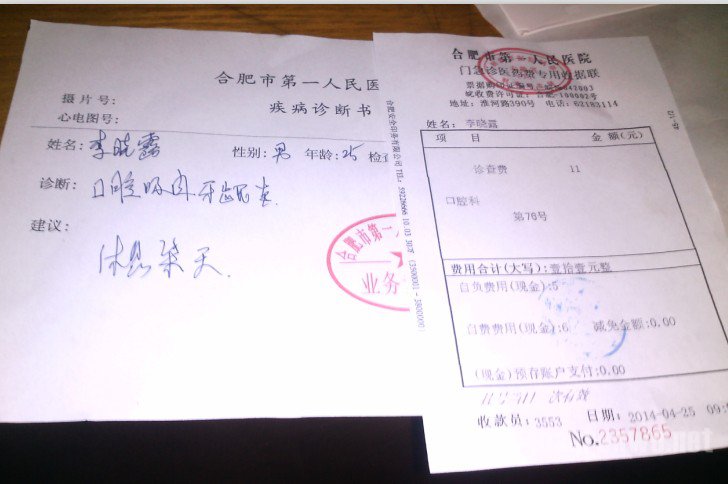 合肥市第一人民医
疾病诊断书
摄片号:
心电图号:
姓名: 李晓露 性别: 男 年龄: 25 检
诊断: 口腔 牙龈炎
建议: 休息 天
合肥市第一
业务
合肥市第一人民医院
门急诊医药专用收据联
地址: 淮河路390号 电话: 62183114
姓名: 李晓露
项 目 金额(元)
诊查费 11
口腔科
第76号
费用合计(大写):壹拾壹元整
自负费用(现金):5
自费费用(现金):6 减免金额:0.00
(现金)预存账户支付:0.00
收款员: 3553 日期: 2014-04-25 09:
No.2357865